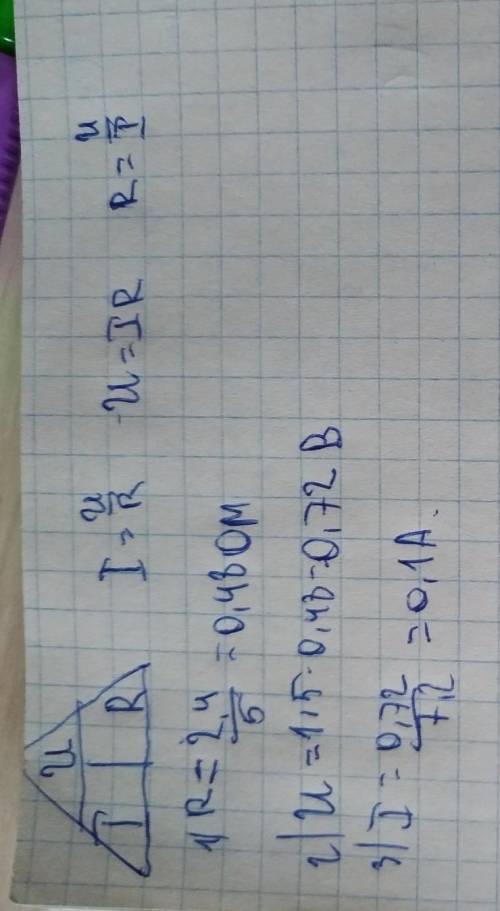 U
I R
I = U/R U = IR R = U/I
1) R = 2,4/5 = 0,48 Ом
2) U = 1,5 · 0,48 = 0,72 В
3) I = 0,72/7,2 = 0,1 А.